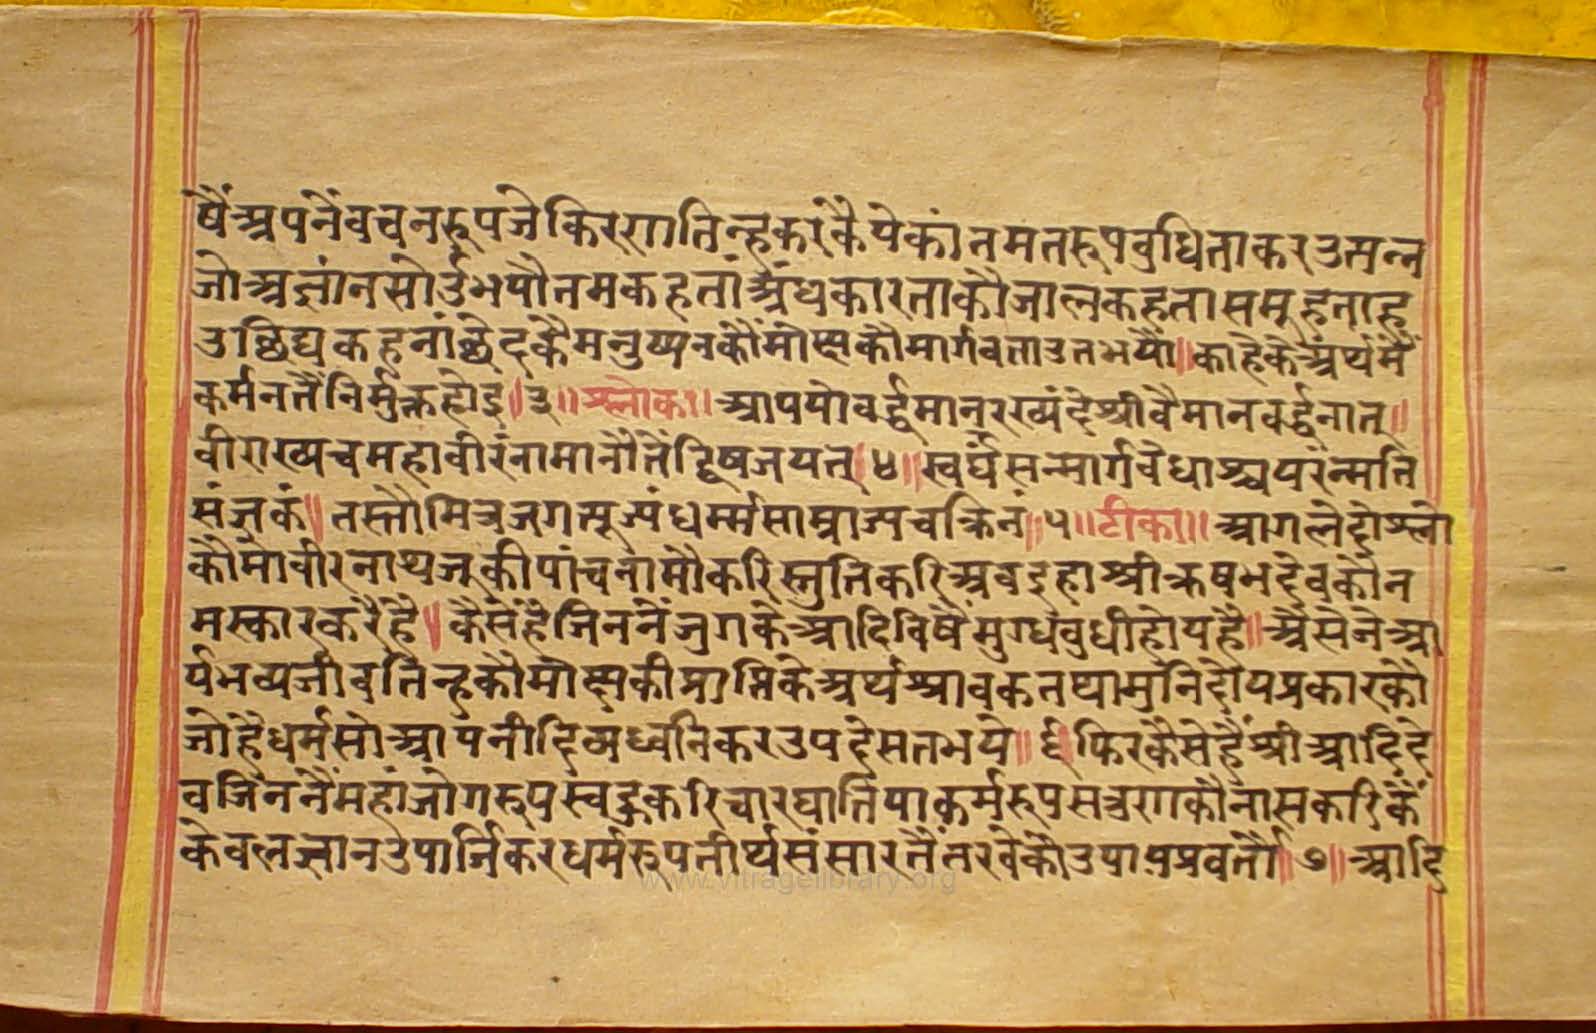 षैंअपनैंवचनरूपजेकिरणातिन्हकरिकैयेकांतमतरूपवुधिताकरउत्पन्न
जोअज्ञांनसोईभयौतमकहतांअंधकारताकौजालकहतासमुहताह
उछिद्यकहनांछेदकैमनुष्यनकौंमोक्षकौमार्गवताउतभयौ॥काहेकेअर्थमैं
कर्मनतैंनिर्मुक्तहोइ॥३॥श्लोक॥आपयोवर्द्धमानरख्यंदेश्रीवैमानवर्द्धनात्॥
वीराख्यचमहावीरंनामानौतैंद्विषजयत्॥४॥स्वर्घसन्मार्गवैधाश्चयपरंन्मति
संज्ञकं॥तस्तौमित्रजगत्पूज्यंधर्म्मसाम्राज्यचक्रिनं॥५॥टीका॥आगलेदोश्लो
कौमोवीरनाथजुकीपांचनामौकरिस्तुतिकरिअवइहाश्रीऋषभदेवकौन
मस्कारकरैहै॥कैसेंहैंजिननेंजुगकेआदिविषैमुग्धवुधीहोयहै॥अैसेजेआ
र्यभव्यजीवतिन्हकौमोक्षकीप्राप्तिकेअर्थश्रावकतथामुनिदोयप्रकारकौ
जोहैधर्मसोआपनीदिव्यध्वनिकरउपदेसतभये॥६॥फिरकैसेहैंश्रीआदिदे
वजिननैंमहांजोगरूपखड्गकरिचारघातियाकर्मरूपसत्रुगणकौनासकरिकैं
केवलज्ञानउपार्जिकरधर्मरूपतीर्थसंसारतैंतरवेकौउपायप्रवर्तौ॥७॥आदि
www.vitragelibrary.org